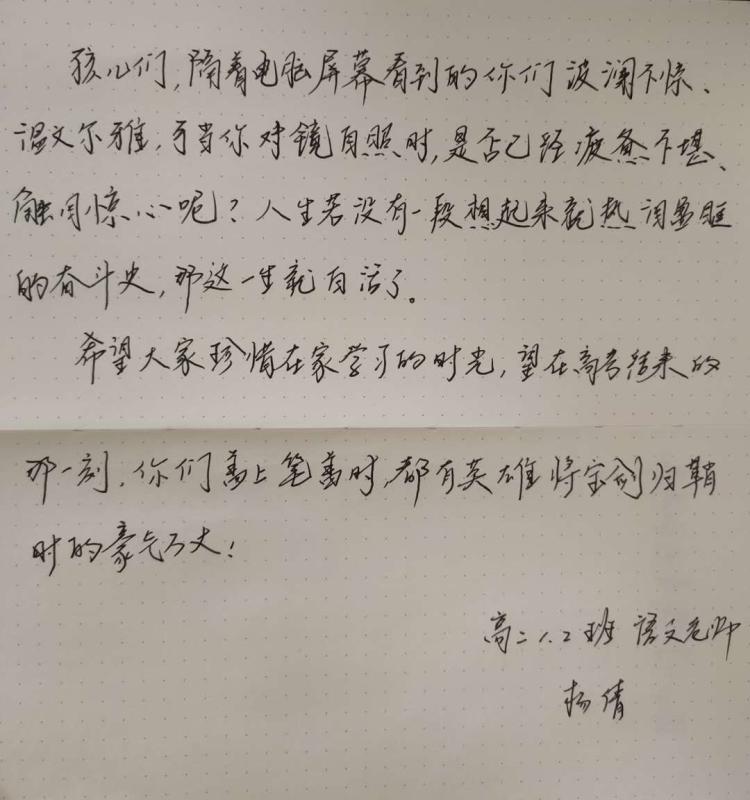 孩儿们,隔着电脑屏幕看到的你们波澜不惊、
温文尔雅,可当你对镜自照时,是否已经疲惫不堪、
触目惊心呢?人生若没有一段想起来就热泪盈眶
的奋斗史,那这一生就白活了。
希望大家珍惜在家学习的时光,望在高考结束的
那一刻,你们盖上笔盖时,都有英雄将宝剑归鞘
时的豪气万丈!
高二1.2班 语文老师
杨倩